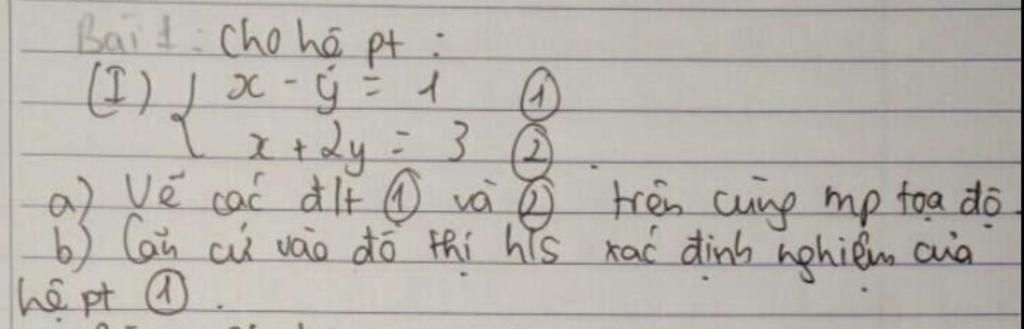 Bài 1: Cho hệ pt :
(I) { x - y = 1 ①
x + 2y = 3 ② .
a) Vẽ các đ/t ① và ② trên cùng mp tọa độ.
b) Căn cứ vào đồ thị h/s xác định nghiệm của
hệ pt ① .